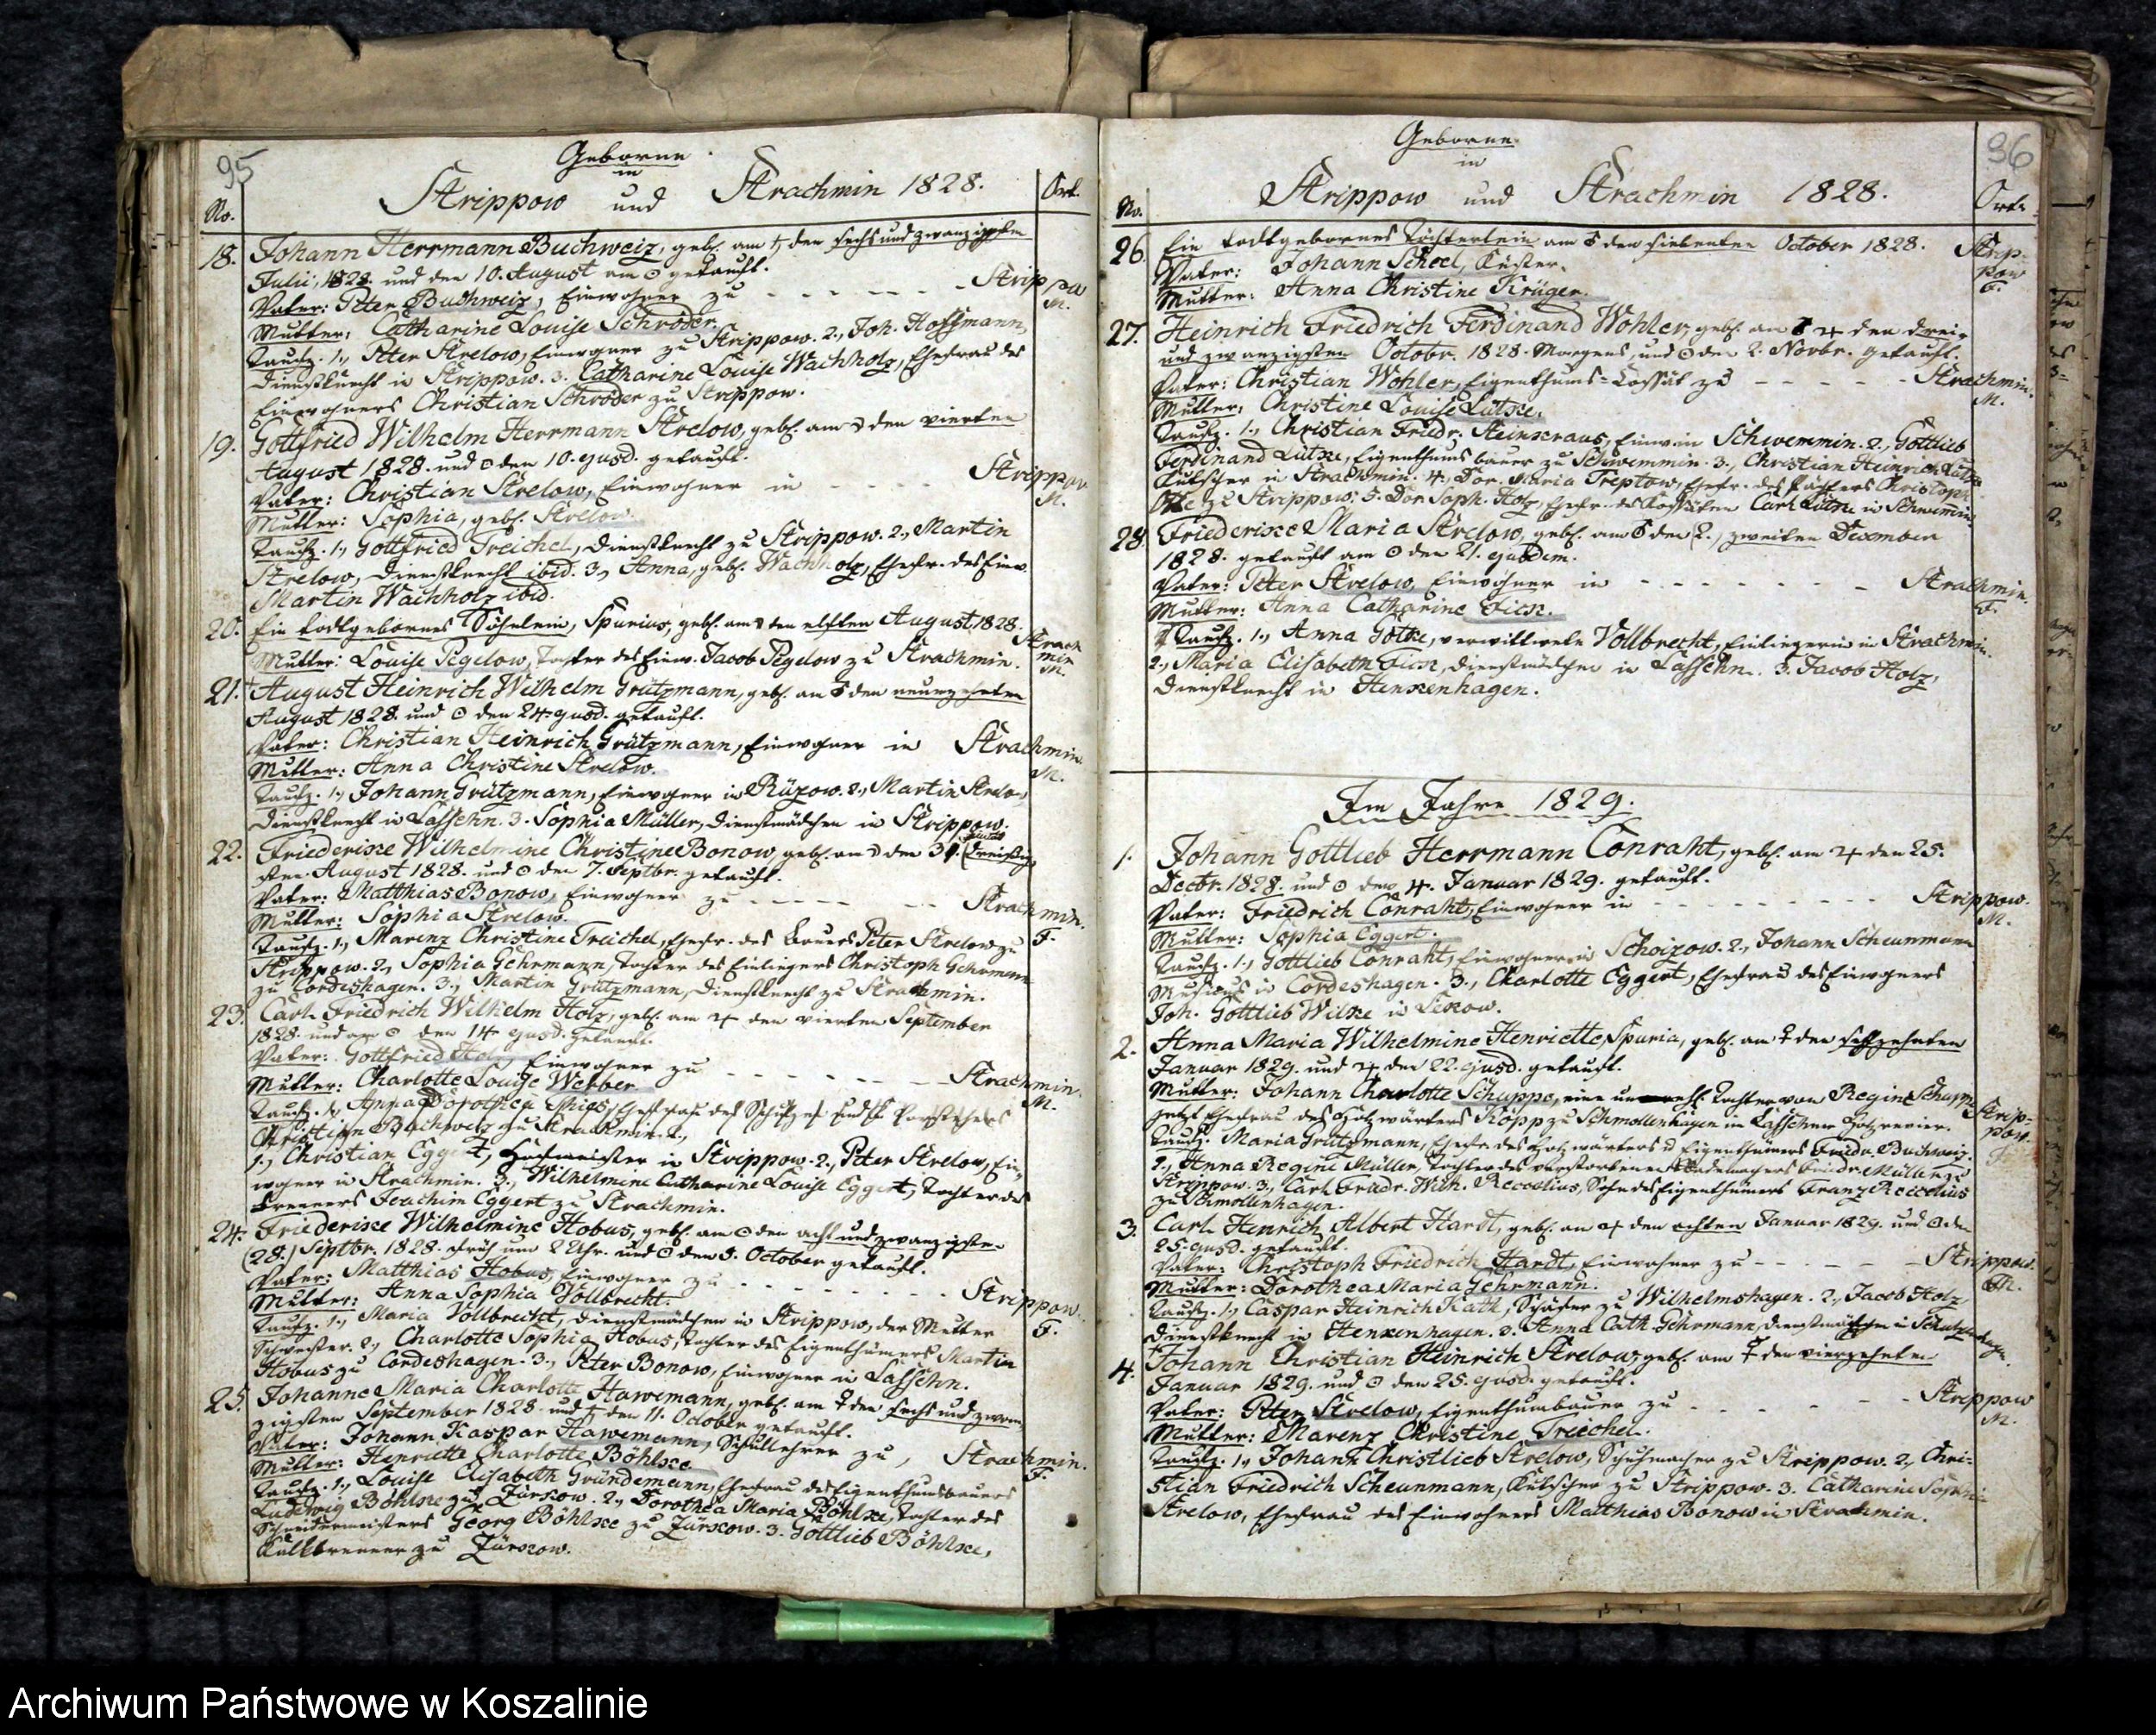 95
Geborne
in
Strippow und Strachmin 1828.
No.
Ort.
18. Johann Herrmann Buchweiz, geb. am ♄ den sechs und zwanzigsten
Julii, 1828. und den 10. August am ☉ getauft.
Vater: Peter Buchweiz, Einwohner zu - - - - - - Strippow
M.
Mutter: Catharine Louise Schröder.
Taufz. 1., Peter Strelow, Einwohner zu Strippow. 2., Joh. Hoffmann,
Dienstknecht in Strippow. 3. Catharine Louise Wachholz, Ehefrau des
Einwohners Christian Schröder zu Strippow.
19. Gottfried Wilhelm Herrmann Strelow, geb. am den vierten
August 1828. und ☉ den 10. ejusd. getauft.
Vater: Christian Strelow, Einwohner in - - - - Strippow
M.
Mutter: Sophia, geb. Strelow.
Taufz. 1., Gottfried Treichel, Dienstknecht zu Strippow. 2., Martin
Strelow, Dienstknecht ibid. 3., Anna, geb. Wachholz, Ehefr. des Einw.
Martin Wachholz ibid.
20. Ein todtgebornes Söhnlein, Spurius, geb. am den elften August 1828.
Mutter: Louise Pegelow, Tochter des Einw. Jacob Pegelow zu Strachmin.
Strach
min
M.
21. August Heinrich Wilhelm Grützmann, geb. am ♂ den neunzehnten
August 1828. und ☉ den 24. ejusd. getauft.
Vater: Christian Heinrich Grützmann, Einwohner in Strachmin.
M.
Mutter: Anna Christine Strelow.
Taufz. 1., Johann Grützmann, Einwohner in Rützow. 2., Martin Strelow,
Dienstknecht in Lassehn. 3. Sophia Müller, Dienstmädchen in Strippow.
22. Friederike Wilhelmine Christine Bonow geb. am den 31.
August 1828. und ☉ den 7. Septbr. getauft.
Vater: Matthias Bonow, Einwohner zu - - - - - Strachmin.
F.
Mutter: Sophia Strelow.
Taufz. 1., Marenz Christine Treichel, Ehefr. des Bauers Peter Strelow zu
Strippow. 2., Sophia Gehrmann, Tochter des Einliegers Christoph Gehrmann
zu Cordeshagen. 3., Martin Grützmann, Dienstknecht zu Strachmin.
23. Carl Friedrich Wilhelm Holz, geb. am ♃ den vierten September
1828. und am ☉ den 14 ejusd. getauft.
Vater: Gottfried Holz Einwohner zu - - - - - Strachmin.
M.
Mutter: Charlotte Louise Webber
Taufz. Anna Dorothea Ehefrau des
Christian Buchweiz zu Strachmin.
1., Christian Eggert, Hofmeister in Strippow. 2., Peter Strelow, Ein-
wohner in Strachmin. 3., Wilhelmine Catharine Louise Eggert, Tochter des
Joachim Eggert zu Strachmin.
24. Friederike Wilhelmine Hobus, geb. am ☉ den acht und zwanzigsten
(28.) Septbr. 1828. früh um 2 Uhr. und ☉ den 5. October getauft.
Vater: Matthias Hobus, Einwohner zu - - - - - Strippow.
F.
Mutter: Anna Sophia Vollbrecht.
Taufz. 1., Maria Vollbrecht, Dienstmädchen in Strippow, der Mutter
Schwester. 2., Charlotte Sophia Hobus, Tochter des Eigenthümers Martin
Hobus zu Cordeshagen. 3., Peter Bonow, Einwohner in Lassehn.
25. Johanne Maria Charlotte Hawemann, geb. am den sechs und zwan-
zigsten September 1828. und ♄ den 11. October getauft.
Vater: Johann Kaspar Hawemann, Schullehrer zu, Strachmin.
F.
Mutter: Henriette Charlotte Böhlke
Taufz. 1., Louise Elisabeth Gründemann, Ehefrau des Eigenthumsbauers
Ludewig Böhlke zu Zürkow. 2., Dorothea Maria Böhlke, Tochter des
Schneidermeisters Georg Böhlke zu Zürkow. 3. Gottlieb Böhlke,
Kalkbrenner zu Zürkow.
96
Geborne
in
Strippow und Strachmin 1828.
No.
Ort.
26. Ein todtgebornes Töchterlein am ♂ den siebenten October 1828.
Strip-
pow
F.
Vater: Johann Scheel, Küster.
Mutter: Anna Christine Krüger.
27. Heinrich Friedrich Ferdinand Wohler, geb. am ♃ den drei-
und zwanzigsten Octobr. 1828. Morgens, und ☉ den 2. Novbr. getauft.
Vater: Christian Wohler, Eigenthums-Cossät zu - - - - - Strachmin.
M.
Mutter: Christine Louise Lütke.
Taufz. 1., Christian Friedr. Steinkraus, Einw. in Schwemmin. 2., Gottlieb
Ferdinand Lütke, Eigenthumsbauer zu Schwemmin. 3., Christian Heinrich Lütke
Kutscher in Strachmin. 4., Dor. Maria Treptow, Ehefr. des Christoph
zu Strippow. 5. Dor. Soph. Holz, Ehefr. des Kossäten Carl Lütke in Schwemmin
28. Friederike Maria Strelow, geb. am ♂ den (2.) zweiten December
1828. getauft am ☉ den 21. ejusdem.
Vater: Peter Strelow, Einwohner in - - - - - Strachmin.
F.
Mutter: Anna Catharine Fick.
Taufz. 1., Anna Götke, verwittwete Vollbrecht, Einliegerin in Strachmin.
2., Maria Elisabeth Fick, Dienstmädchen in Lassehn. 3. Jacob Holz,
Dienstknecht in Henkenhagen.
Im Jahre 1829.
1. Johann Gottlieb Herrmann Conraht, geb. am ♃ den 25.
Decbr. 1828. und ☉ den 4. Januar 1829. getauft.
Vater: Friedrich Conraht, Einwohner in - - - - - Strippow.
M.
Mutter: Sophia Eggert.
Taufz. 1., Gottlieb Conraht, Einwohner in Schoizow. 2., Johann Scheunmann
Musicus in Cordeshagen. 3., Charlotte Eggert, Ehefrau des Einwohners
Joh. Gottlieb Wilke in Lekow.
2. Anna Maria Wilhelmine Henriette, Spuria, geb. am den sechszehnten
Januar 1829. und ♃ den 22. ejusd. getauft.
Mutter: Johann Charlotte Schuppe, eine Tochter von Regine Schuppe
jetzt Ehefrau des Holzwärters Köpp zu Schmollenhagen im Lassehner Holzrevier.
Strip-
pow.
F.
Taufz. Maria Grützmann, Ehefr. des Holzwärters u Eigenthümers Friedr. Buchweiz.
2., Anna Regine Müller, Tochter des verstorbenen Rademachers Friedr. Müller zu
Strippow. 3., Carl Friedr. Wilh. Reccelius, Sohn des Eigenthümers Franz Reccelius
zu Schmollenhagen.
3. Carl Heinrich Albert Hardt, geb. am ♃ den achten Januar 1829. und ☉ den
25. ejusd. getauft.
Vater: Christoph Friedrich Hardt, Einwohner zu - - - - - Strippow.
M.
Mutter: Dorothea Maria Gehrmann.
Taufz. 1., Caspar Heinrich Kath, Schäfer zu Wilhelmshagen. 2., Jacob Holz
Dienstknecht in Henkenhagen. 3. Anna Cath. Gehrmann, Dienstmädchen in
4. Johann Christian Heinrich Strelow, geb. am den vierzehnten
Januar 1829. und ☉ den 25. ejusd. getauft.
Vater: Peter Strelow, Eigenthumsbauer zu - - - - - Strippow
M.
Mutter: Marenz Christine Treichel.
Taufz. 1., Johann Christlieb Strelow, Schuhmacher zu Strippow. 2., Chri-
stian Friedrich Scheunmann, Kutscher zu Strippow. 3. Catharine Sophia
Strelow, Ehefrau des Einwohners Matthias Bonow in Strachmin.
Archiwum Państwowe w Koszalinie